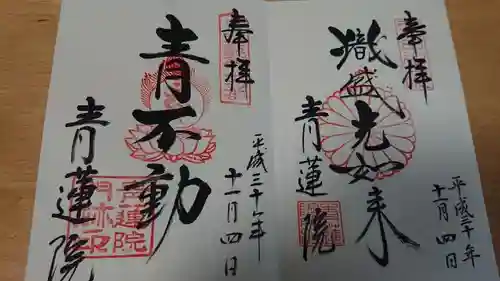 奉拝
熾盛光如来
青蓮院
平成三十年
十一月四日
奉拝
青不動
青蓮院
平成三十年
十一月四日